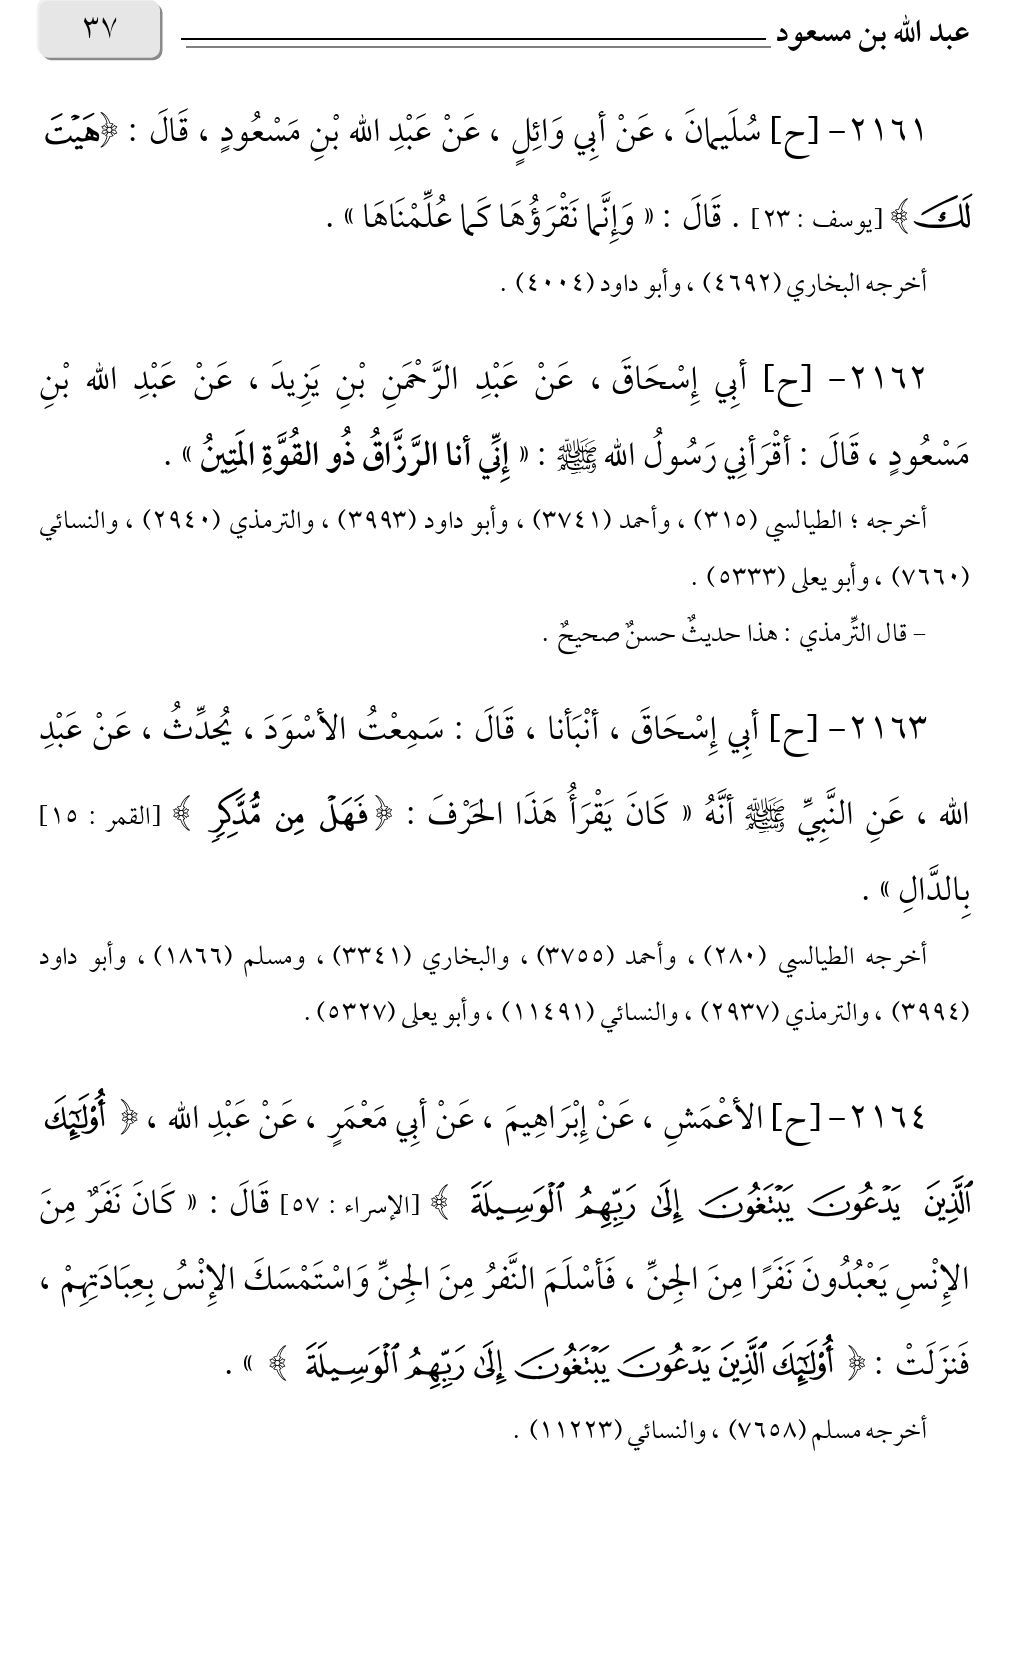 عبد الله بن مسعود ٣٧
٢١٦١- [ح] سُلَيمانَ ، عَنْ أبِي وَائِلٍ ، عَنْ عَبْدِ الله بْنِ مَسْعُودٍ ، قَالَ : ﴿هَيْتَ
لَكَ﴾ [يوسف : ٢٣] . قَالَ : « وَإِنَّما نَقْرَؤُهَا كَما عُلِّمْنَاهَا » .
أخرجه البخاري (٤٦٩٢) ، وأبو داود (٤٠٠٤) .
٢١٦٢- [ح] أبِي إِسْحَاقَ ، عَنْ عَبْدِ الرَّحْمَنِ بْنِ يَزِيدَ ، عَنْ عَبْدِ الله بْنِ
مَسْعُودٍ ، قَالَ : أقْرَأنِي رَسُولُ الله ﷺ : « إِنِّي أنا الرَّزَّاقُ ذُو القُوَّةِ المَتِينُ » .
أخرجه ؛ الطيالسي (٣١٥) ، وأحمد (٣٧٤١) ، وأبو داود (٣٩٩٣) ، والترمذي (٢٩٤٠) ، والنسائي
(٧٦٦٠) ، وأبو يعلى (٥٣٣٣) .
– قال التِّرمذي : هذا حديثٌ حسنٌ صحيحٌ .
٢١٦٣- [ح] أبِي إِسْحَاقَ ، أنْبَأنا ، قَالَ : سَمِعْتُ الأسْوَدَ ، يُحَدِّثُ ، عَنْ عَبْدِ
الله ، عَنِ النَّبِيِّ ﷺ أنَّهُ « كَانَ يَقْرَأُ هَذَا الحَرْفَ : ﴿فَهَلْ مِن مُّدَّكِرٍ ﴾ [القمر : ١٥]
بِالدَّالِ » .
أخرجه الطيالسي (٢٨٠) ، وأحمد (٣٧٥٥) ، والبخاري (٣٣٤١) ، ومسلم (١٨٦٦) ، وأبو داود
(٣٩٩٤) ، والترمذي (٢٩٣٧) ، والنسائي (١١٤٩١) ، وأبو يعلى (٥٣٢٧) .
٢١٦٤- [ح] الأعْمَشِ ، عَنْ إِبْرَاهِيمَ ، عَنْ أبِي مَعْمَرٍ ، عَنْ عَبْدِ الله ، ﴿ أُوْلَٰٓئِكَ
ٱلَّذِينَ يَدْعُونَ يَبْتَغُونَ إِلَىٰ رَبِّهِمُ ٱلْوَسِيلَةَ ﴾ [الإسراء : ٥٧] قَالَ : « كَانَ نَفَرٌ مِنَ
الإِنْسِ يَعْبُدُونَ نَفَرًا مِنَ الجِنِّ ، فَأسْلَمَ النَّفرُ مِنَ الجِنِّ وَاسْتَمْسَكَ الإِنْسُ بِعِبَادَتِهِمْ ،
فَنزَلَتْ : ﴿ أُوْلَٰٓئِكَ ٱلَّذِينَ يَدْعُونَ يَبْتَغُونَ إِلَىٰ رَبِّهِمُ ٱلْوَسِيلَةَ ﴾ » .
أخرجه مسلم (٧٦٥٨) ، والنسائي (١١٢٢٣) .